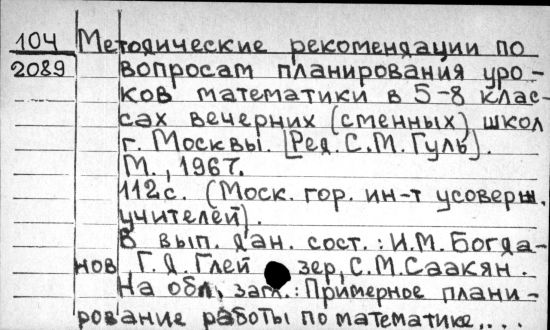 104 Методические рекомендации по
2089 вопросам планирования уро-
ков математики в 5-8 клас-
сах вечерних (сменных) школ
г. Москвы. [Ред. С.М. Гуль].
М., 1967.
112с. (Моск. гор. ин-т усоверш.
учителей).
В вып. дан. сост.: И.М. Богда-
нов Г.Д. Глейзер, С.М. Саакян.
На обл. загл.: Примерное плани-
рование работы по математике...